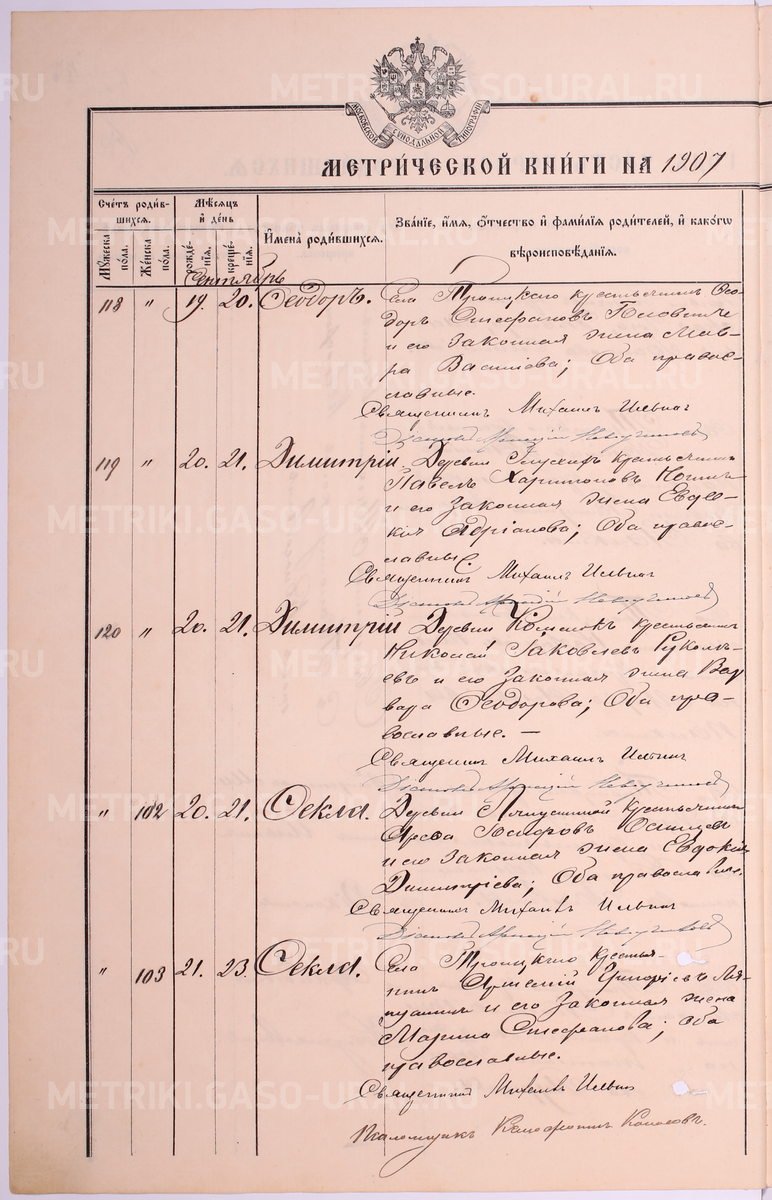 МОСКОВСКОЙ СѴНОДАЛЬНОЙ ТИПОГРАФІИ
МЕТРИ́ЧЕСКОЙ КНИ́ГИ НА 1907
Сче́тъ роди́в-
шихся.
Мꙋ́жеска по́ла.
Же́нска по́ла.
Мѣ́сяцъ и̂ де́нь
рожде́нїя.
креще́нїя.
И̂мена̀ роди́вшихся.
Зва́нїе, и́мя, ѻ́тчество и̂ фами́лїя роди́телей, и̂ како́гѡ
вѣроисповѣ́данїя.
Сентябрь
118 " 19. 20. Ѳеодоръ. Села Троицкаго крестьянинъ Ѳео-
доръ Стефановъ
и его законная жена Мав-
ра Василіева; Оба право-
славные.
Священникъ Михаилъ Ильинъ
119 " 20. 21. Димитрій. Деревни крестьянинъ
Павелъ Харитоновъ
и его законная жена Евдо-
кія Адріанова; Оба право-
славные.
Священникъ Михаилъ Ильинъ
120 " 20. 21. Димитрій Деревни крестьянинъ
Николай Іаковлевъ
и его законная жена Вар
вара Ѳеодорова; Оба пра-
вославные. —
Священникъ Михаилъ Ильинъ
" 102 20. 21. Ѳекла. Деревни крестьянинъ
и его законная жена Евдокія
Димитріева; Оба православные.
Священникъ Михаилъ Ильинъ
" 103 21. 23. Ѳекла. Села Троицкаго крестья-
нинъ Григоріевъ
и его законная жена
Марина Стефанова; оба
православные.
Священникъ Михаилъ Ильинъ
Псаломщикъ
METRIKI.GASO-URAL.RU